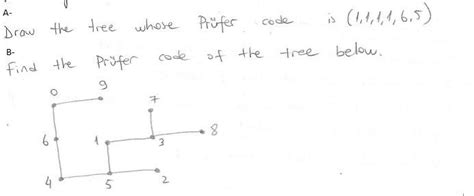 A-
Draw the tree whose Prüfer code is (1,1,1,1,6,5)
B-
find the Prüfer code of the tree below.
0 9
7
6 1 3 8
4 5 2